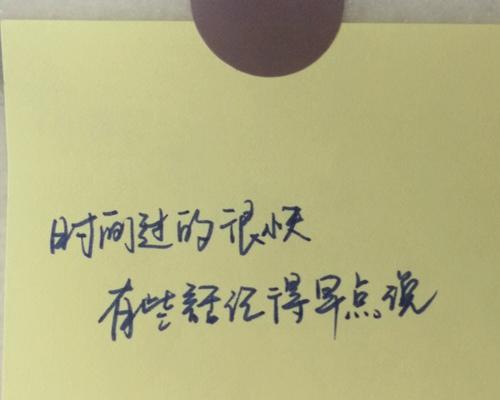 时间过的很快
有些話记得早点说